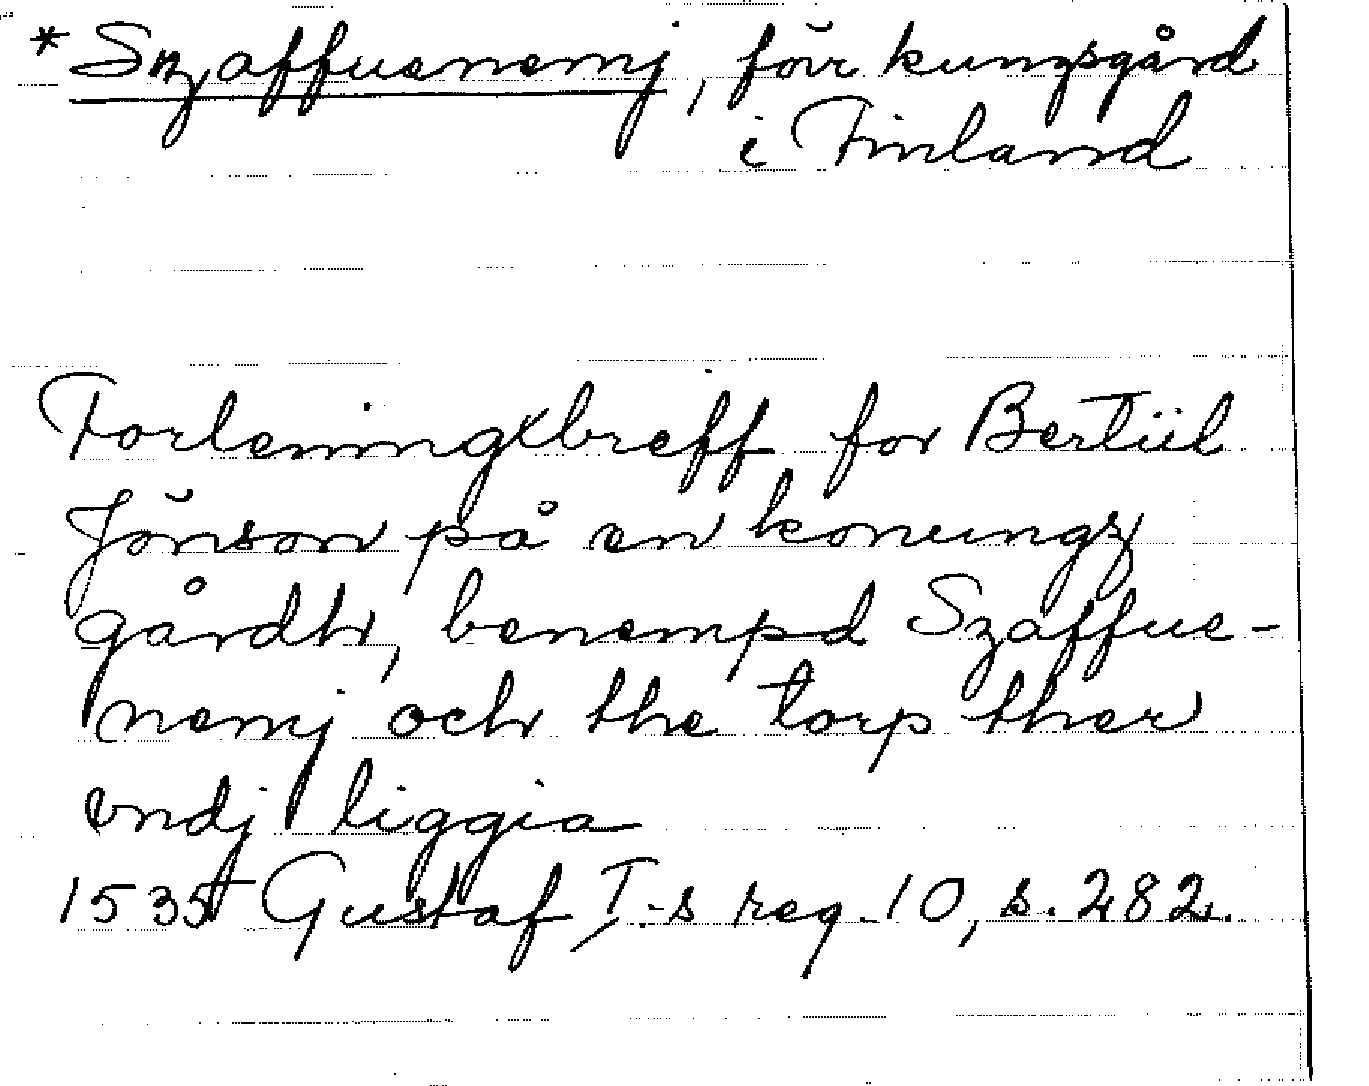 * Szaffuenemj, förr kungsgård
i Finland
Forleningxbreff for Bertiil
Jönson på en konungz
gårdh, benempd Szaffue-
nemj och the torp ther
vndj liggia
1535 Gustaf I.s reg. 10, s. 282.